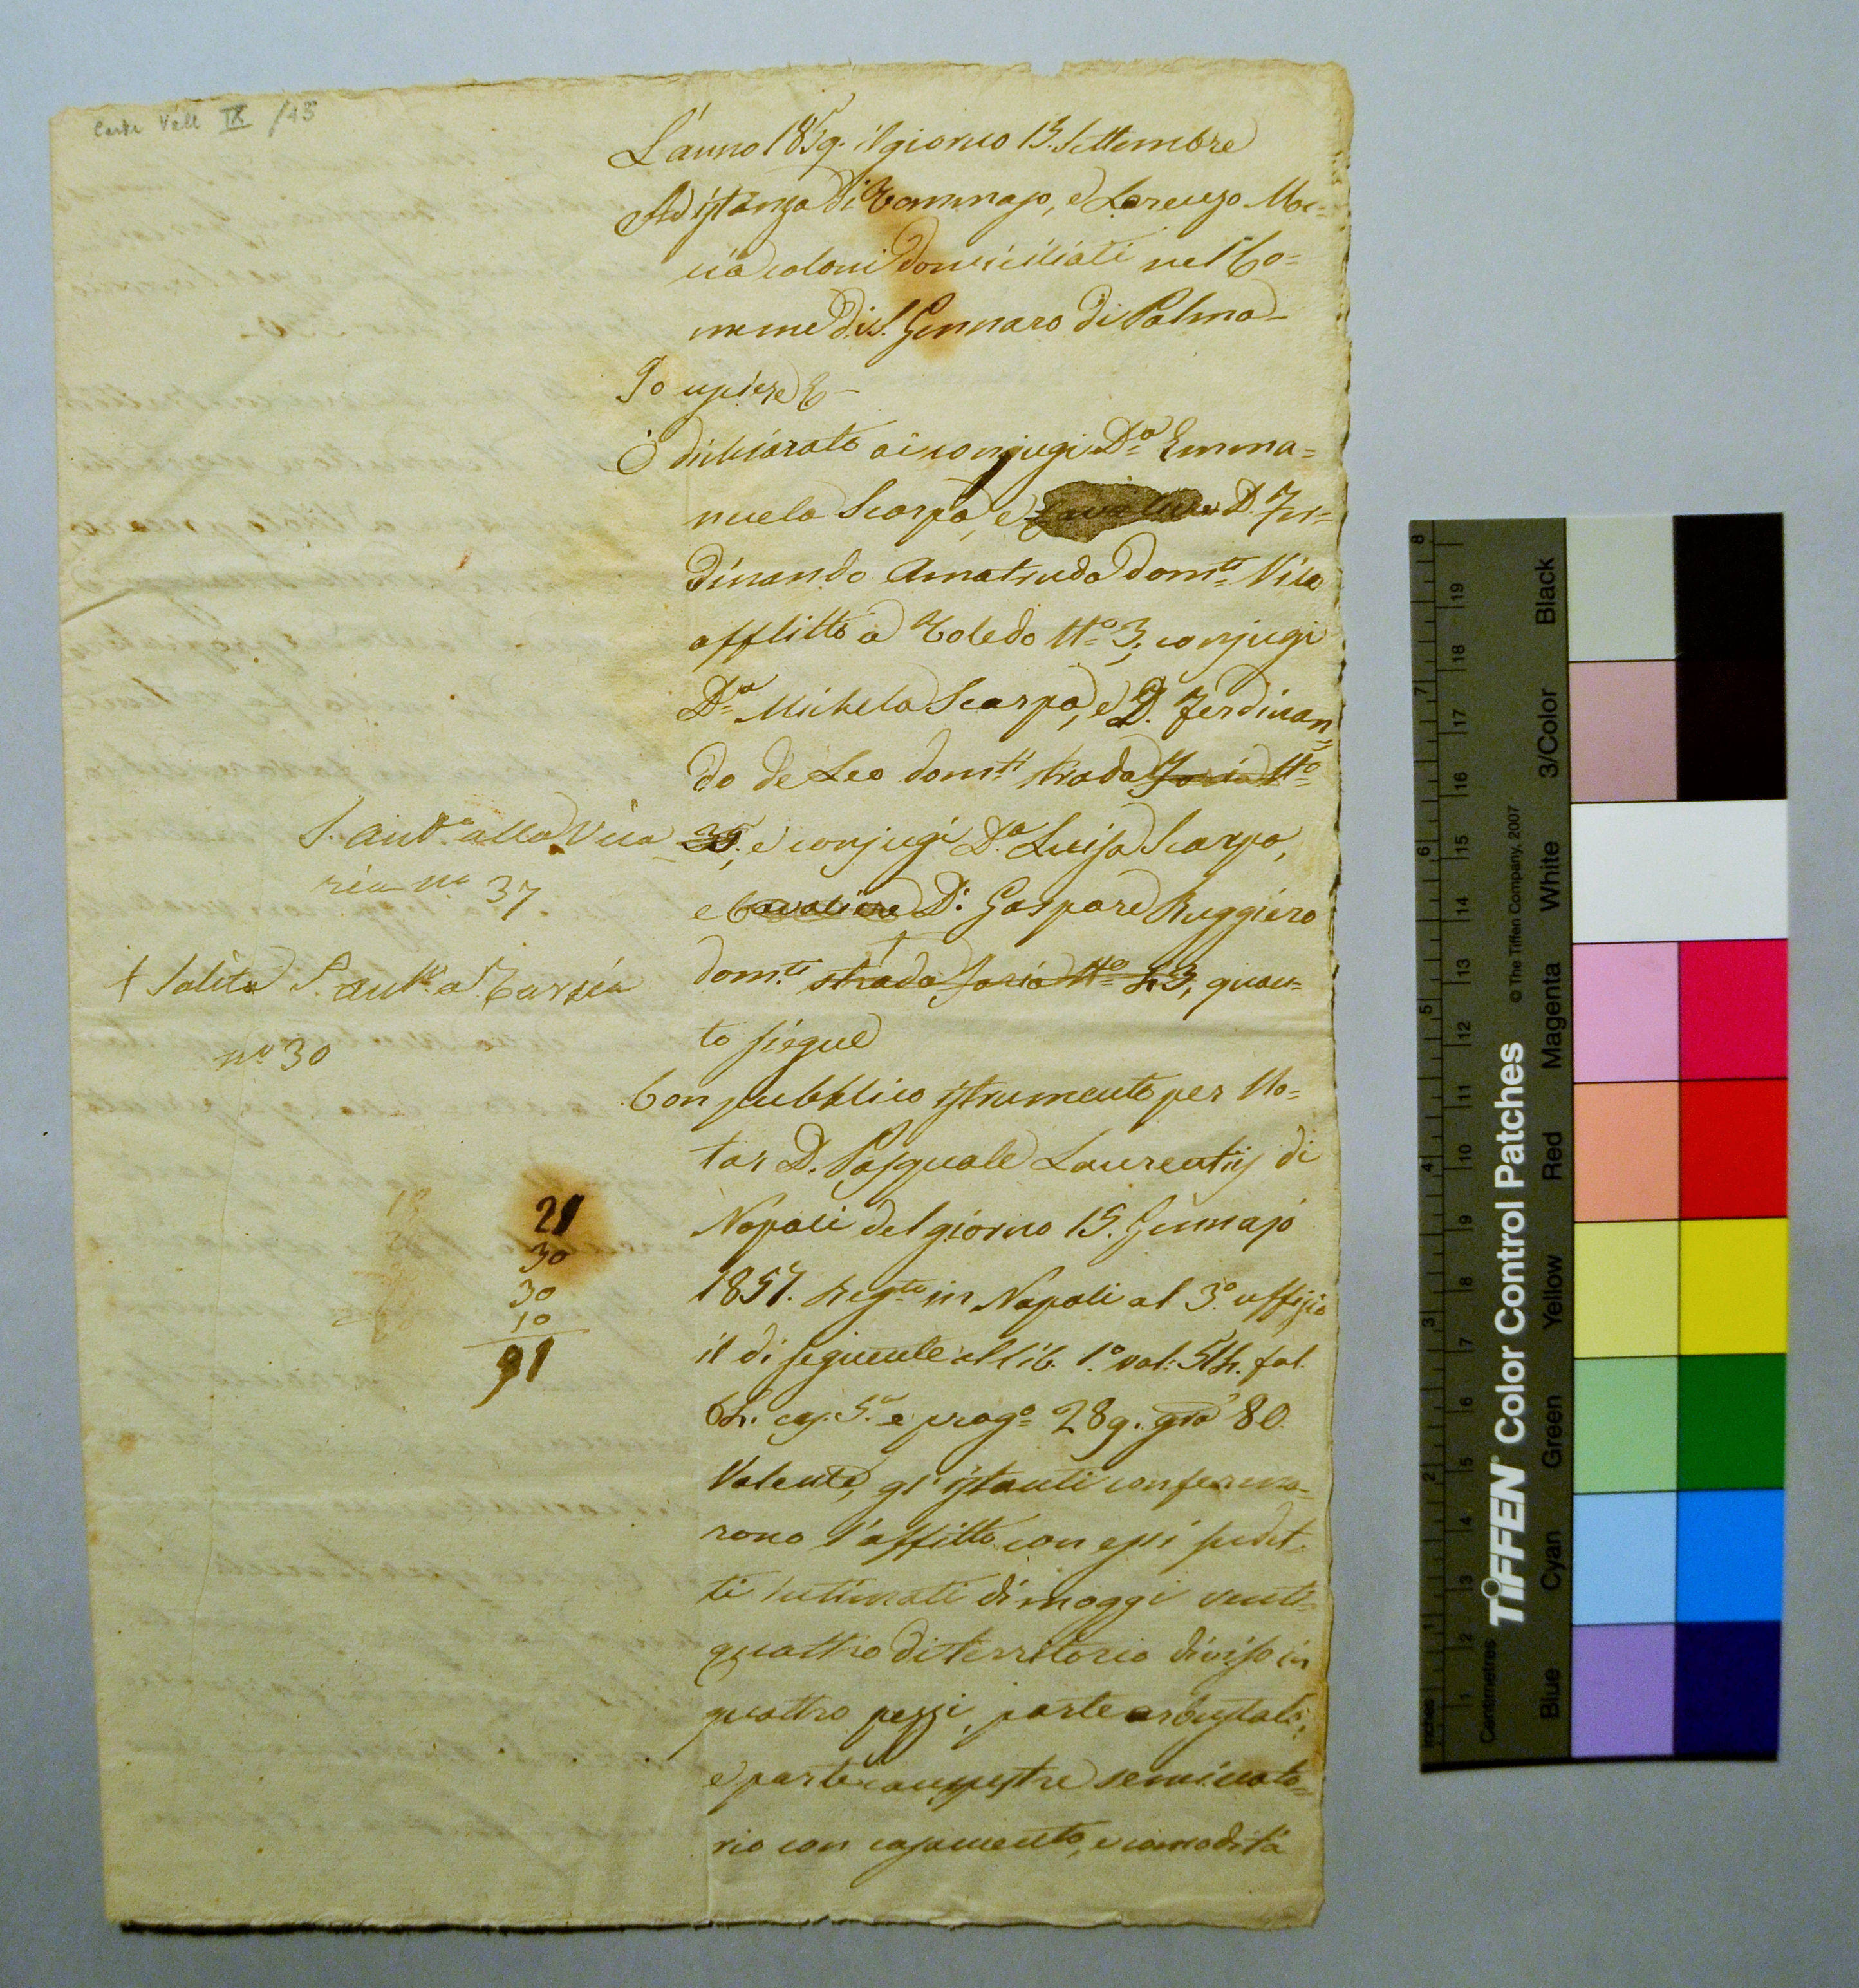 Carte Vall IX /15
L'anno 1859. il giorno 13. Settembre
Ad istanza di Tommaso, e Lorenzo Moc=
cia coloni domiciliati nel Co=
mune di S. Gennaro di Palma
Io usciere &
Ò dichiarato ai conjugi D.a Emma=
nuela Scarpa, e Cavaliere D. Fer=
dinando Amatruda dom.ti Vico
afflitto a Toledo N.o 3, conjugi
D.a Michela Scarpa, e D. Ferdinan=
do de Leo dom.ti strada Foria N.o
35, e conjugi D.a Luisa Scarpa,
S. Ant.o alla Vica
ria no 37
e Cavaliere D. Gaspare Ruggiero
dom.ti strada Foria N.o 43, quan=
† Salita S. Ant.o a Tarsia
no 30
to siegue
Con pubblico istrumento per No=
tar D. Pasquale Laurentiis di
Napoli del giorno 15. Gennajo
1857. Reg.to in Napoli al 3.o uffizio
il di seguente al lib. 1.o vol: 514. fol.
64. cas. 5.a e prog.o 289. gra 80.
21
30
30
10
91
Valente, gl'istanti conferma=
rono l'affitto con essi sudet=
ti intimati di moggi venti=
quattro di territorio diviso in
quattro pezzi, parte arbustati,
e parte campestre seminato=
rio con casamento, e comodità